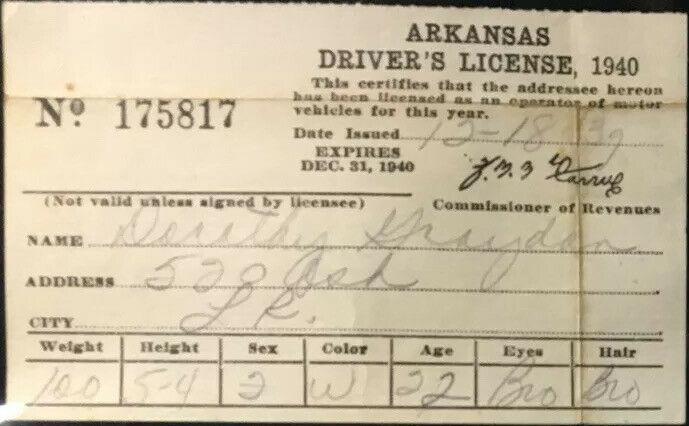 ARKANSAS
DRIVER'S LICENSE, 1940
This certifies that the addressee hereon
has been licensed as an operator of motor
vehicles for this year.
Nº 175817
Date Issued 12-18-39
EXPIRES
DEC. 31, 1940
(Not valid unless signed by licensee)
Commissioner of Revenues
NAME Dorothy Graydon
ADDRESS 520 Ash
CITY L R.
Weight Height Sex Color Age Eyes Hair
100 5-4 W 22 Bro Bro